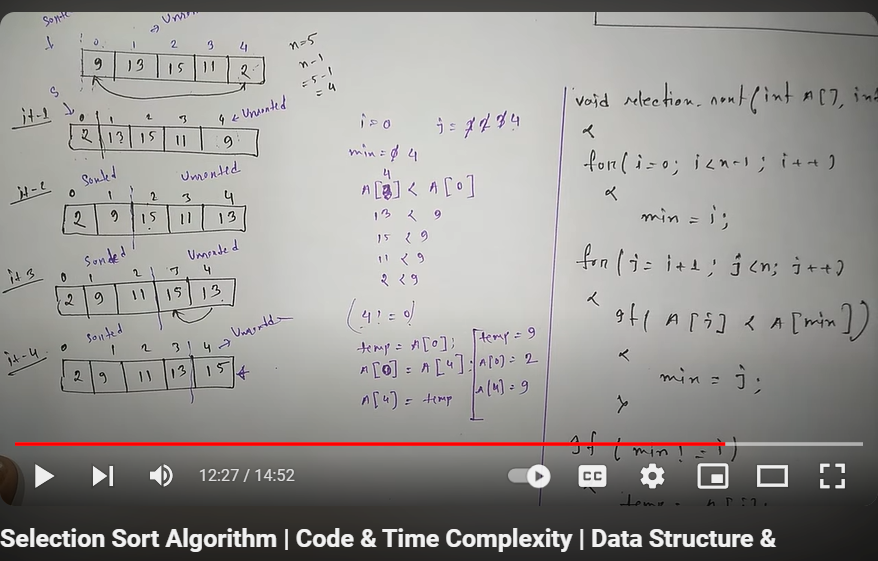 Sorted
→ Unsorted
0 1 2 3 4
9 13 15 11 2
n=5
n-1
=5-1
=4
S
it-1
0 1 2 3 4 ← Unsorted
2 13 15 11 9
Sorted Unsorted
it-2
0 1 2 3 4
2 9 15 11 13
Sorted Unsorted
it 3
0 1 2 3 4
2 9 11 15 13
Sorted → Unsorted
it-4
0 1 2 3 4
2 9 11 13 15
i=0 j= 1 2 3 4
min= 0 4
4
A[3] < A[0]
13 < 9
15 < 9
11 < 9
2 < 9
(4!=0)
temp = A[0];
A[0] = A[4];
A[4] = temp
temp = 9
A[0] = 2
A[4] = 9
void selection_sort(int A[], int
{
for(i=0; i<n-1; i++)
{
min = i;
for(j=i+1; j<n; j++)
{
if( A[j] < A[min])
{
min = j;
}
if (min != i)
{
temp = A[i];
12:27 / 14:52
CC
Selection Sort Algorithm | Code & Time Complexity | Data Structure &